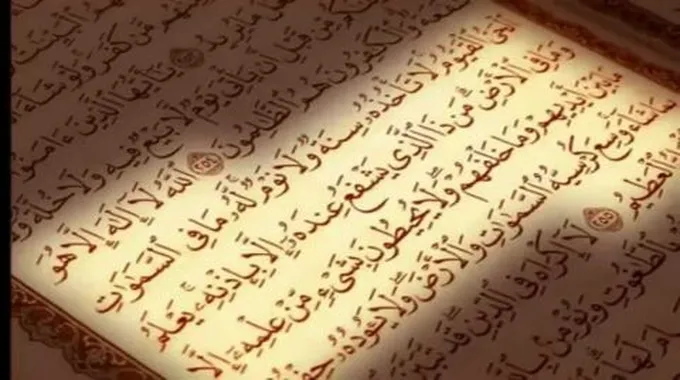 مَّن كَفَرَ وَلَوْ شَآءَ
مَا يُرِيدُ ﴿٢٥٣﴾ يَٰٓأَيُّهَا ٱلَّذِينَ ءَامَنُوٓا۟
مِّن قَبْلِ أَن يَأْتِىَ يَوْمٌ لَّا بَيْعٌ فِيهِ وَلَا خُلَّةٌ وَ
وَٱلْكَٰفِرُونَ هُمُ ٱلظَّٰلِمُونَ ﴿٢٥٤﴾ ٱللَّهُ لَآ إِلَٰهَ إِلَّا هُوَ
ٱلْحَىُّ ٱلْقَيُّومُ لَا تَأْخُذُهُۥ سِنَةٌ وَلَا نَوْمٌ لَّهُۥ مَا فِى ٱلسَّمَٰوَٰتِ
وَمَا فِى ٱلْأَرْضِ مَن ذَا ٱلَّذِى يَشْفَعُ عِندَهُۥٓ إِلَّا بِإِذْنِهِۦ يَعْلَمُ
مَا بَيْنَ أَيْدِيهِمْ وَمَا خَلْفَهُمْ وَلَا يُحِيطُونَ بِشَىْءٍ مِّنْ عِلْمِهِۦٓ إِلَّا
شَآءَ وَسِعَ كُرْسِيُّهُ ٱلسَّمَٰوَٰتِ وَٱلْأَرْضَ وَلَا يَـُٔودُهُۥ
ٱلْعَظِيمُ ﴿٢٥٥﴾ لَآ إِكْرَاهَ فِى ٱلدِّينِ قَد تَّبَيَّنَ
بِٱلطَّٰغُوتِ وَيُؤْمِنۢ
لَهَا